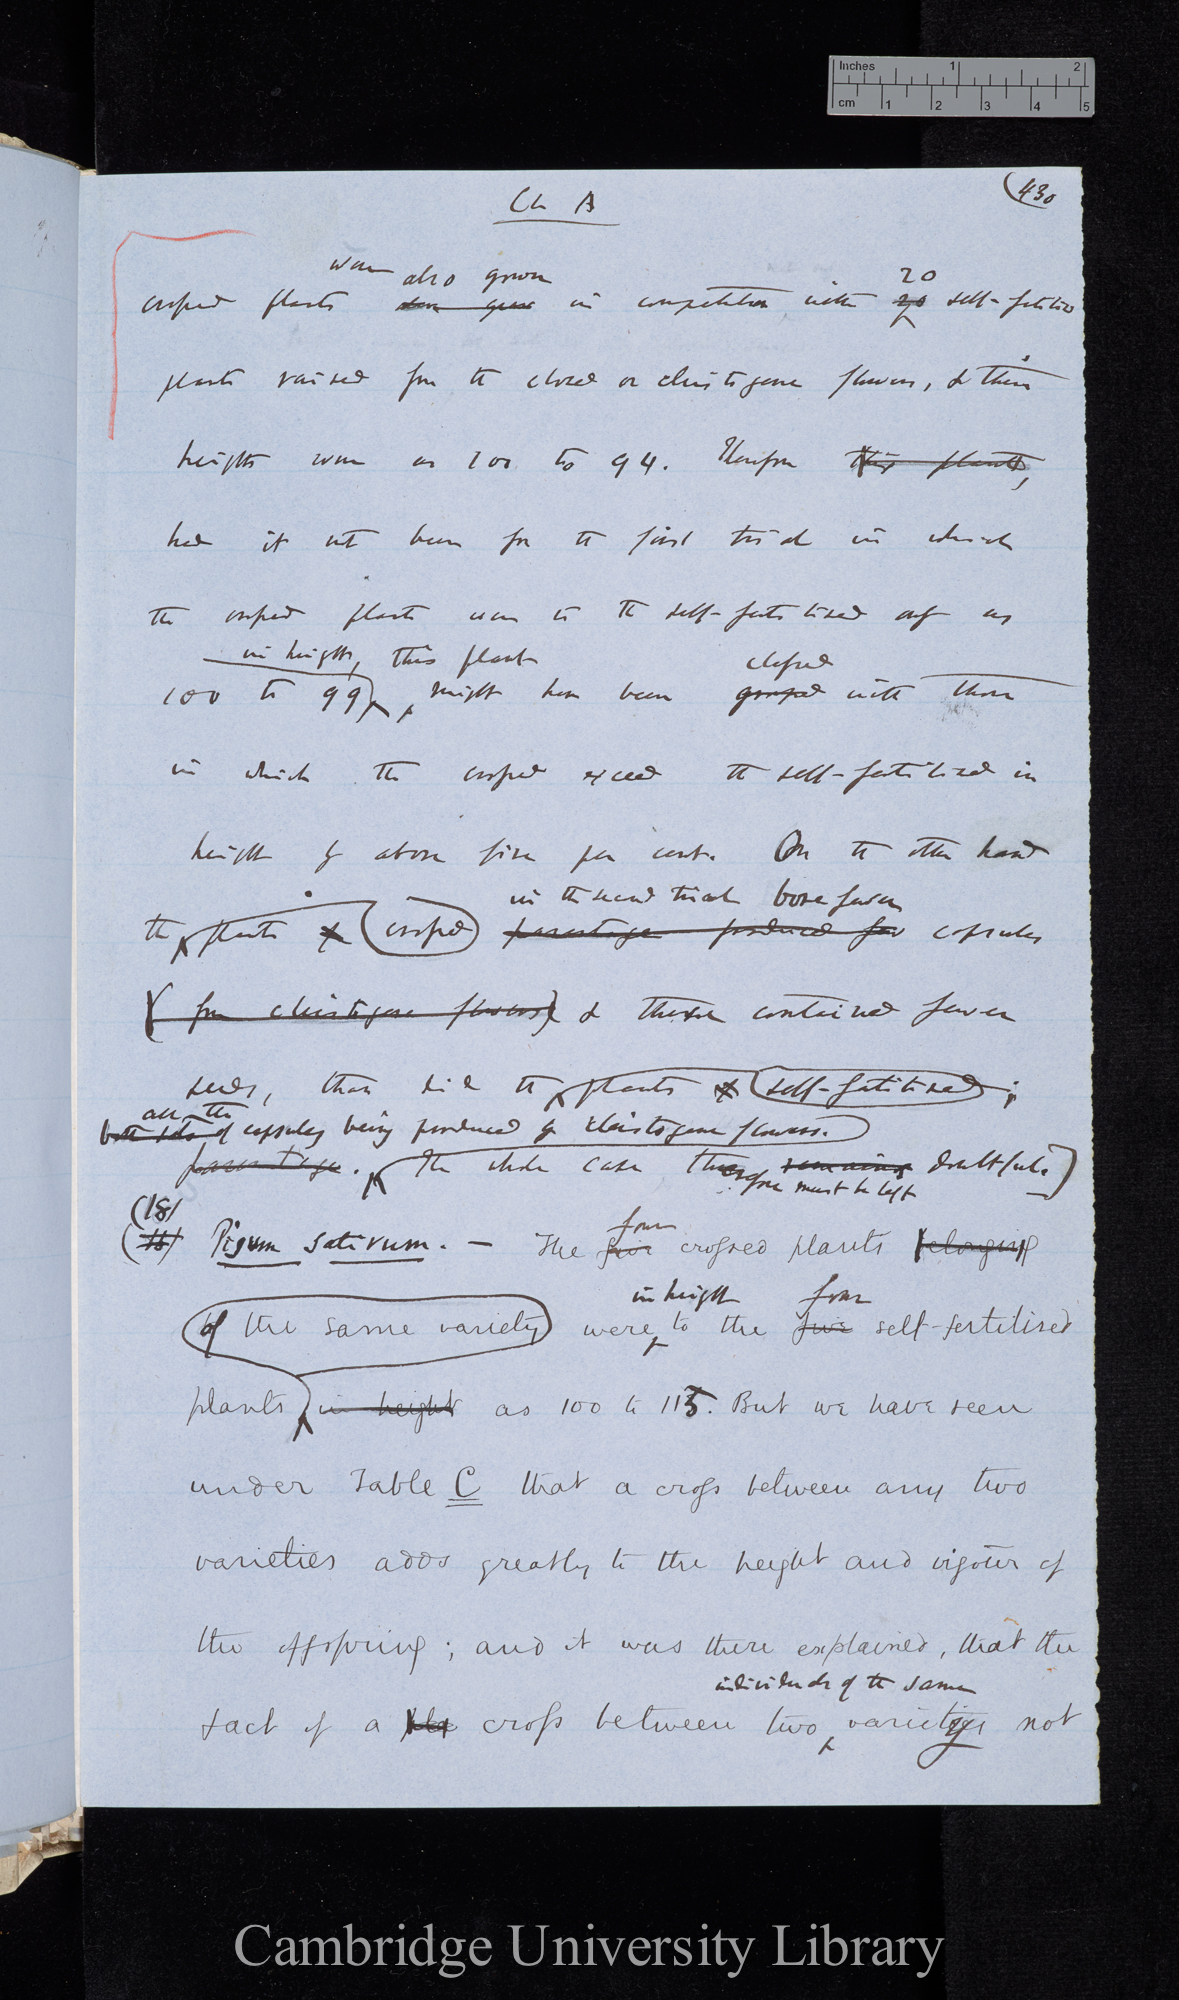 Inches 1 2
cm 1 2 3 4 5
(430
Ch A
were also grown 20
crossed plants in competition with 20 self-fertilised
plants raised from the closed or cleistogene flowers, & their
heights were as 100 to 94. Therefore this plant,
had it not been for the first trial in which
the crossed plants were to the self-fertilised only as
in height, this plant classed
100 to 99), might have been grouped with those
in which the crossed exceed the self-fertilised in
height by above five per cent. On the other hand
in the second trial bore fewer
the plants crossed parentage produced few capsules
(from cleistogene flowers) & these contained fewer
seeds, than did the plants self-fertilised;
all the
both sets of capsules being produced by cleistogene flowers.
parentage. The whole case therefore remains doubtful.]
must be left
(18)
(16) Pisum sativum. — The five crossed plants belonging
four
in height four
of the same variety were to the five self-fertilised
plants in height as 100 to 115. But we have seen
under Table C that a cross between any two
varieties adds greatly to the height and vigour of
the offspring; and it was there explained, that the
individuals of the same
fact of a cross between two varieties not
Cambridge University Library